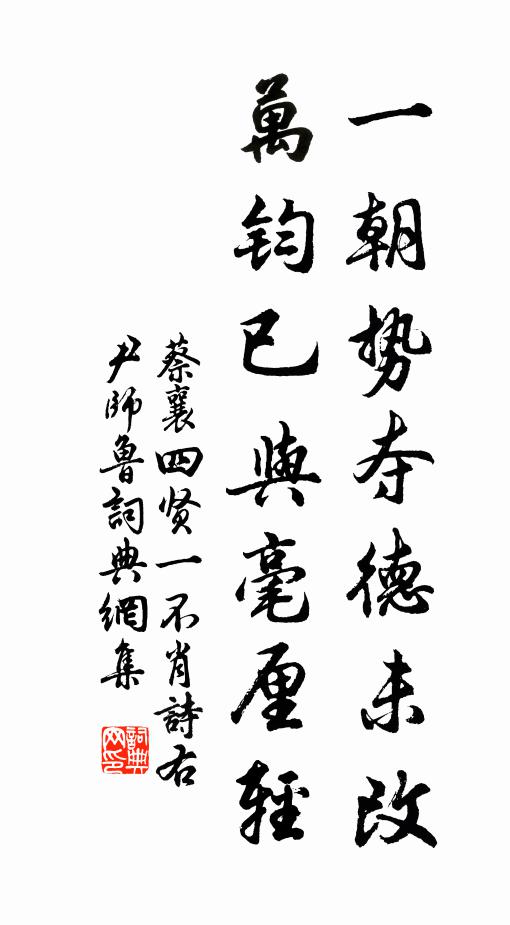 一朝势夺德未改
萬钧已與毫厘輕
蔡襄四贤一不肖詩右
尹師魯詞典網集
詞典网印